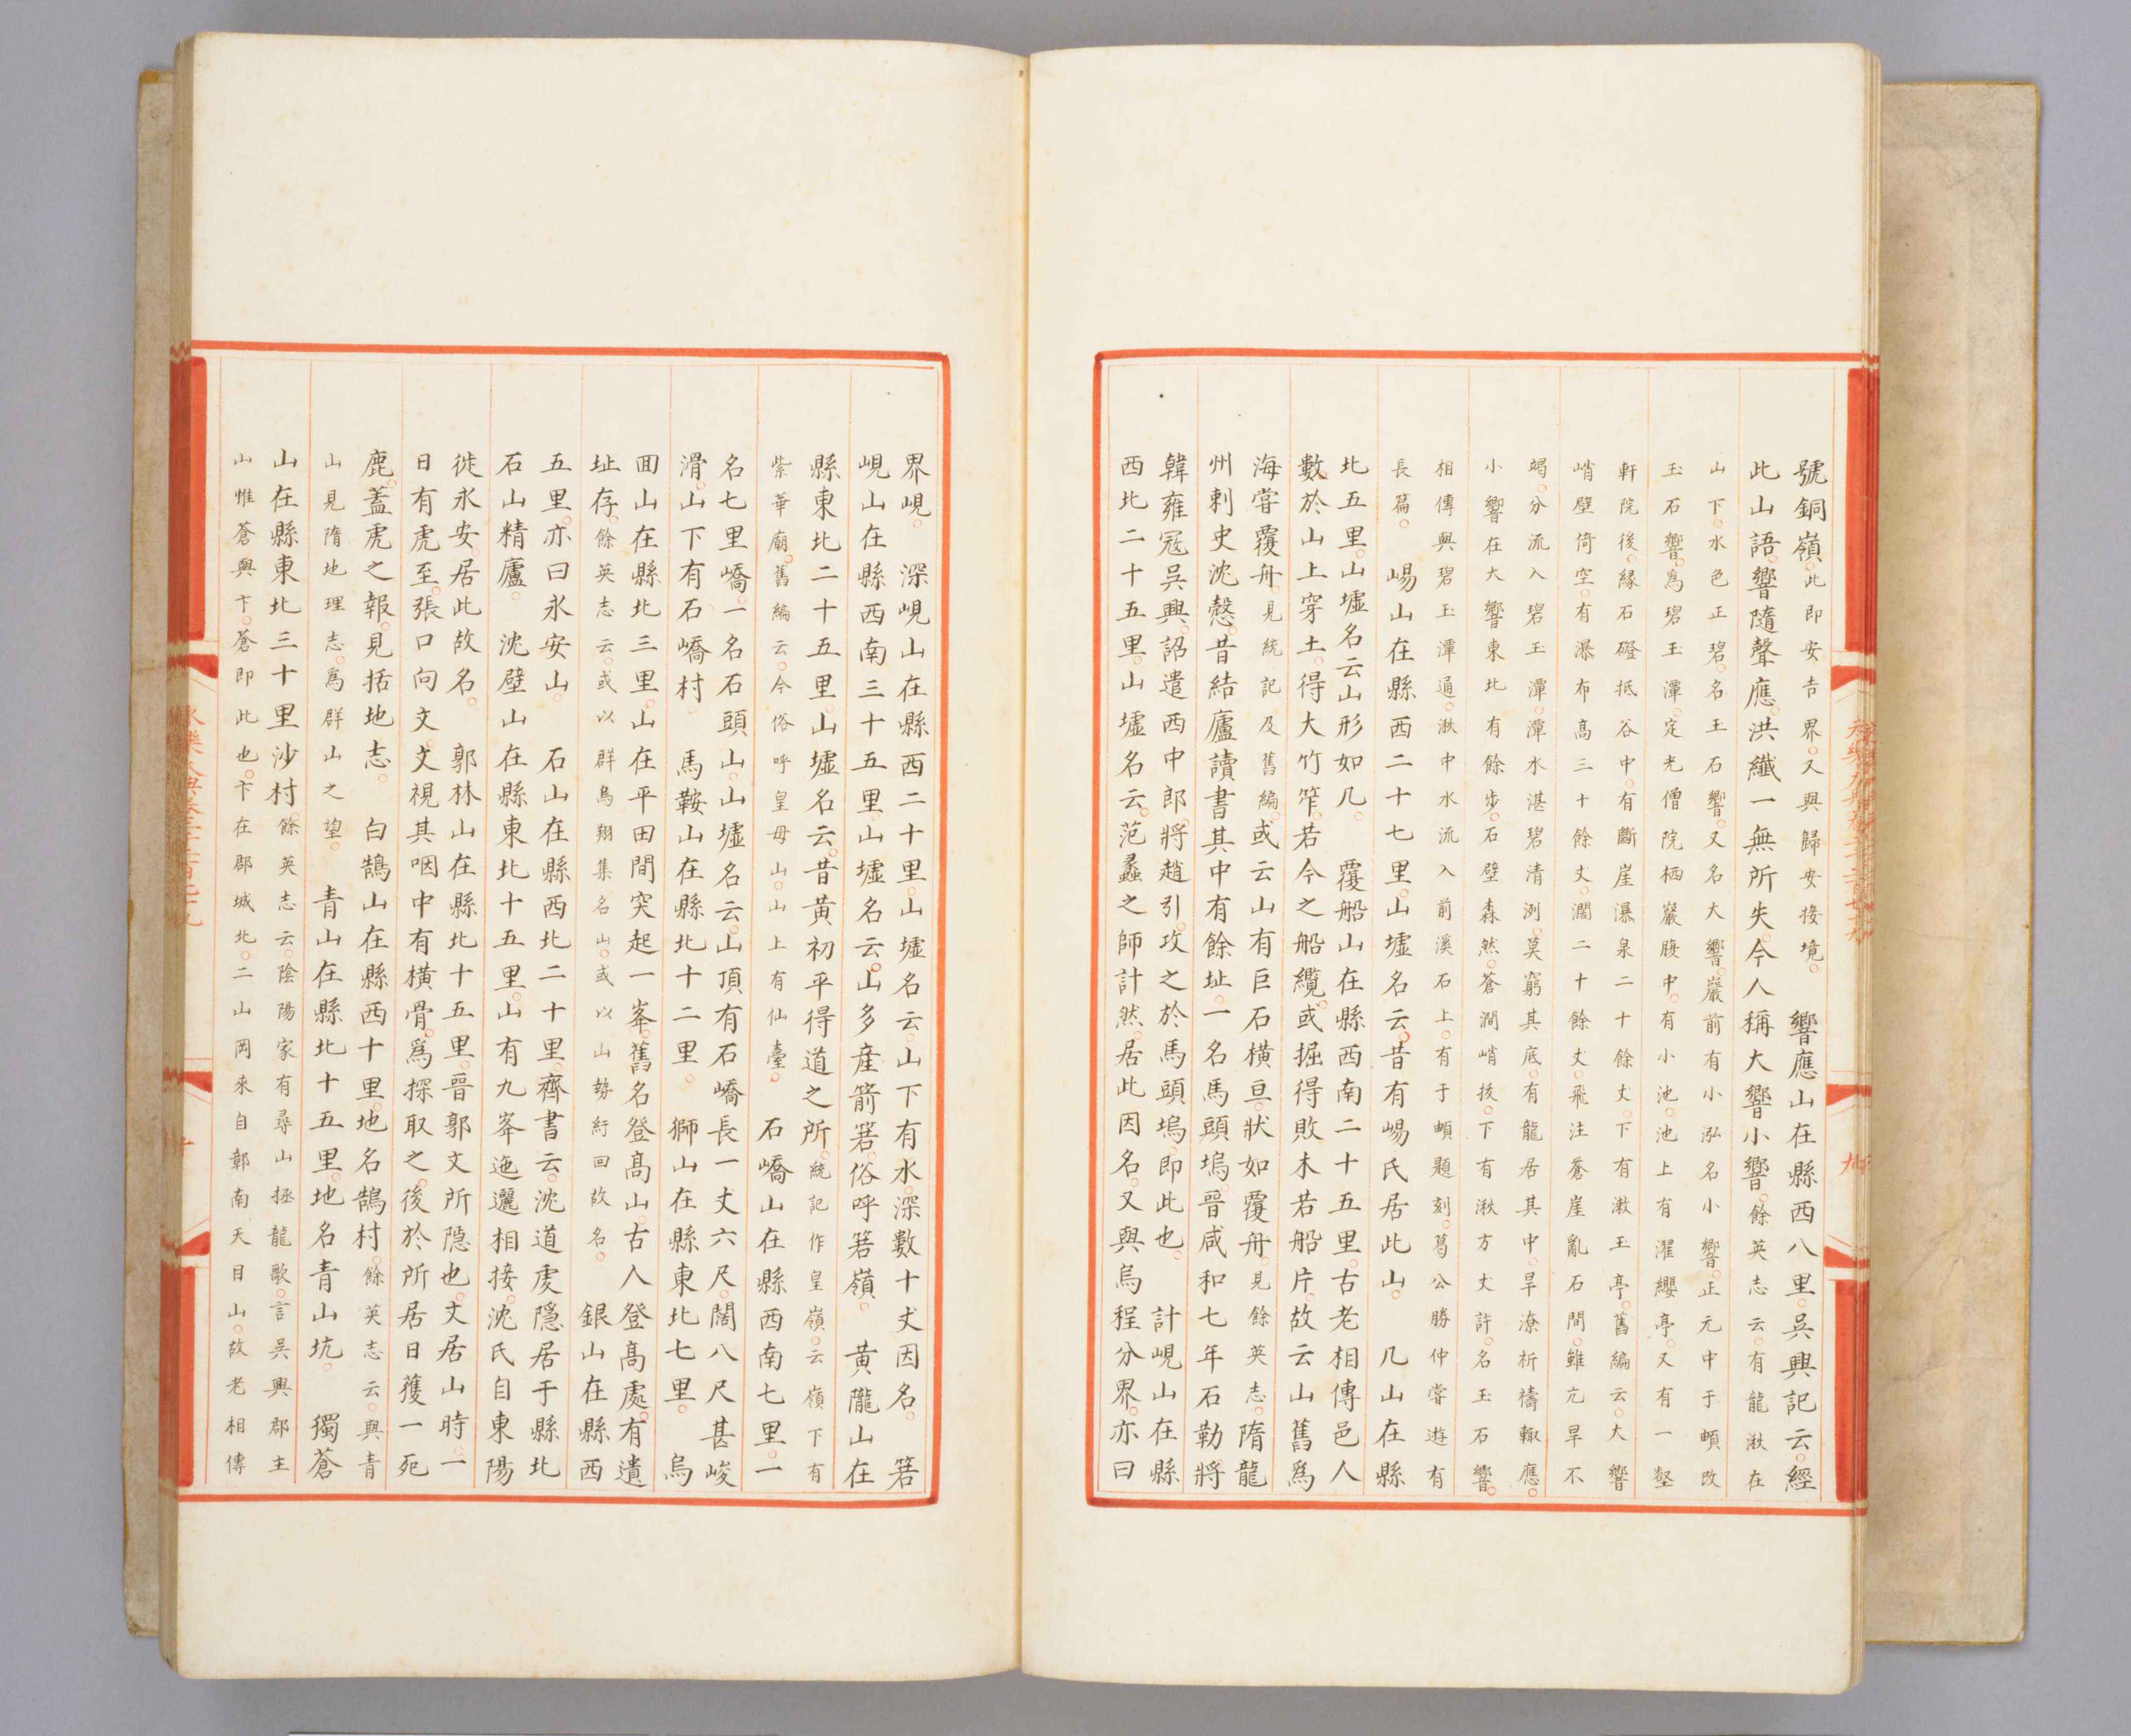 永樂大典卷之二千二百七十九
九
號銅嶺。此即安吉界。又與歸安接境。　響應山在縣西八里。吳興記云。經
此山語。響隨聲應。洪纖一無所失。今人稱大響小響。餘英志云。有龍湫在
山下。水色正碧。名玉石響。又名大響。巖前有小泓名小響。正元中于頔改
玉石響。爲碧玉潭。定光僧院栖巖腹中。有小池。池上有濯纓亭。又有一壑
軒院後。緣石磴抵谷中。有斷崖瀑泉二十餘丈。下有漱玉亭。舊編云。大響
峭壁倚空。有瀑布高三十餘丈。濶二十餘丈。飛注蒼崖亂石間。雖亢旱不
竭。分流入碧玉潭。潭水湛碧清洌。莫窮其底。有龍居其中。旱潦祈禱輙應。
小響在大響東北有餘步。石壁森然。蒼澗峭拔。下有湫方丈許。名玉石響。
相傳與碧玉潭通。湫中水流入前溪石上。有于頔題刻。葛公勝仲嘗遊有
長篇。　崵山在縣西二十七里。山墟名云。昔有崵氏居此山。　几山在縣
北五里。山墟名云。山形如几。　覆船山在縣西南二十五里。古老相傳邑人
數於山上穿土。得大竹笮。若今之船纜。或掘得敗木若船片。故云山舊爲
海嘗覆舟。見統記及舊編。或云山有巨石橫亘。狀如覆舟。見餘英志。隋龍
州刺史沈慤。昔結廬讀書其中有餘址。一名馬頭塢。晉咸和七年石勒將
韓雍冦吳興。詔遣西中郎。將趙引。攻之於馬頭塢。即此也。　計峴山在縣
西北二十五里。山墟名云。范蠡之師計然。居此因名。又與烏程分界。亦曰
界峴。　深峴山在縣西二十里。山墟名云。山下有水。深數十丈因名。　箬
峴山在縣西南三十五里。山墟名云。山多產箭箬。俗呼箬嶺。　黃隴山在
縣東北二十五里。山墟名云。昔黃初平得道之所。統記作皇嶺。云嶺下有
紫華廟。舊編云。今俗呼皇母山。山上有仙臺。　石嶠山在縣西南七里。一
名七里嶠。一名石頭山。山墟名云。山頂有石嶠長一丈六尺。闊八尺甚峻
滑。山下有石嶠村。　馬鞍山在縣北十二里。　獅山在縣東北七里。　烏
回山在縣北三里。山在平田間突起一峯。舊名登高山。古人登高處。有遺
址存。餘英志云。或以群鳥翔集名山。或以山勢紆回故名。　銀山在縣西
五里。亦曰永安山。　石山在縣西北二十里。齊書云。沈道虔隱居于縣北
石山精廬。　沈壁山在縣東北十五里。山有九峯迤邐相接。沈氏自東陽
徙永安。居此故名。　郭林山在縣北十五里。晉郭文所隱也。文居山時。一
日有虎至。張口向文。文視其咽中有橫骨。爲探取之。後於所居日獲一死
鹿。蓋虎之報。見括地志。　白鵲山在縣西十里。地名鵲村。餘英志云。與青
山見隋地理志。爲群山之望。　青山在縣北十五里。地名青山坑。　獨蒼
山在縣東北三十里沙村。餘英志云。陰陽家有尋山拯龍歌。言吳興郡主
山惟蒼與卞。蒼即此也。卞在郡城北。二山岡來自鄣南天目山。故老相傳
永樂大典卷之二千二百七十九
十